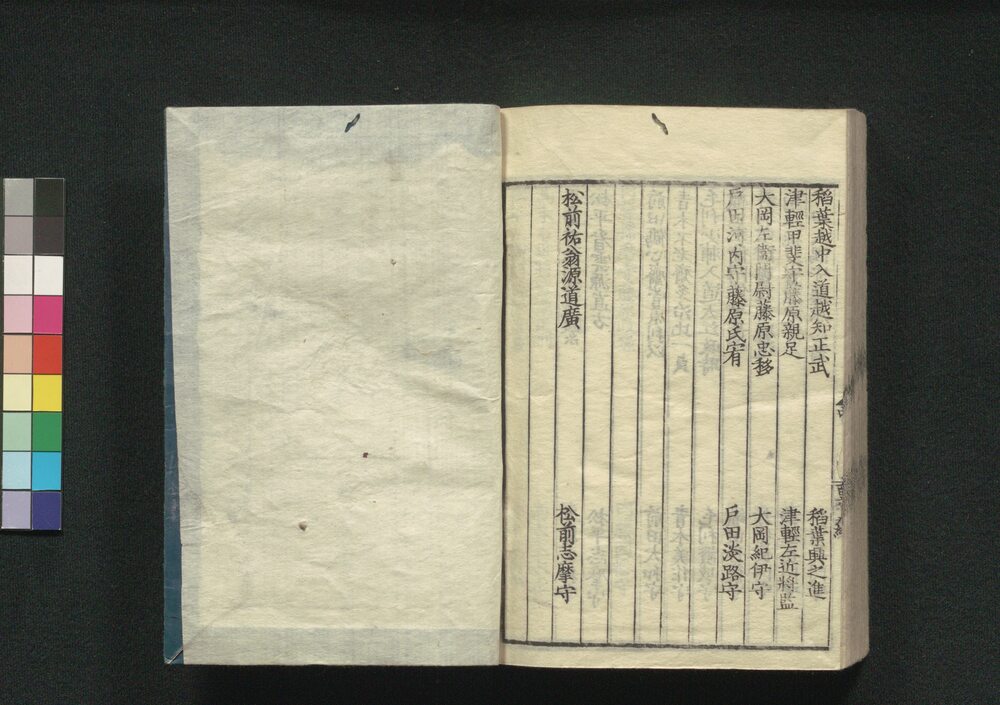 稲葉越中入道越知正武
稲葉興之進
津輕甲斐守藤原親足
津輕左近將監
大岡左衛門尉藤原忠移
大岡紀伊守
戸田河内守藤原氏宥
戸田淡路守
松前祐翁源道廣
松前志摩守